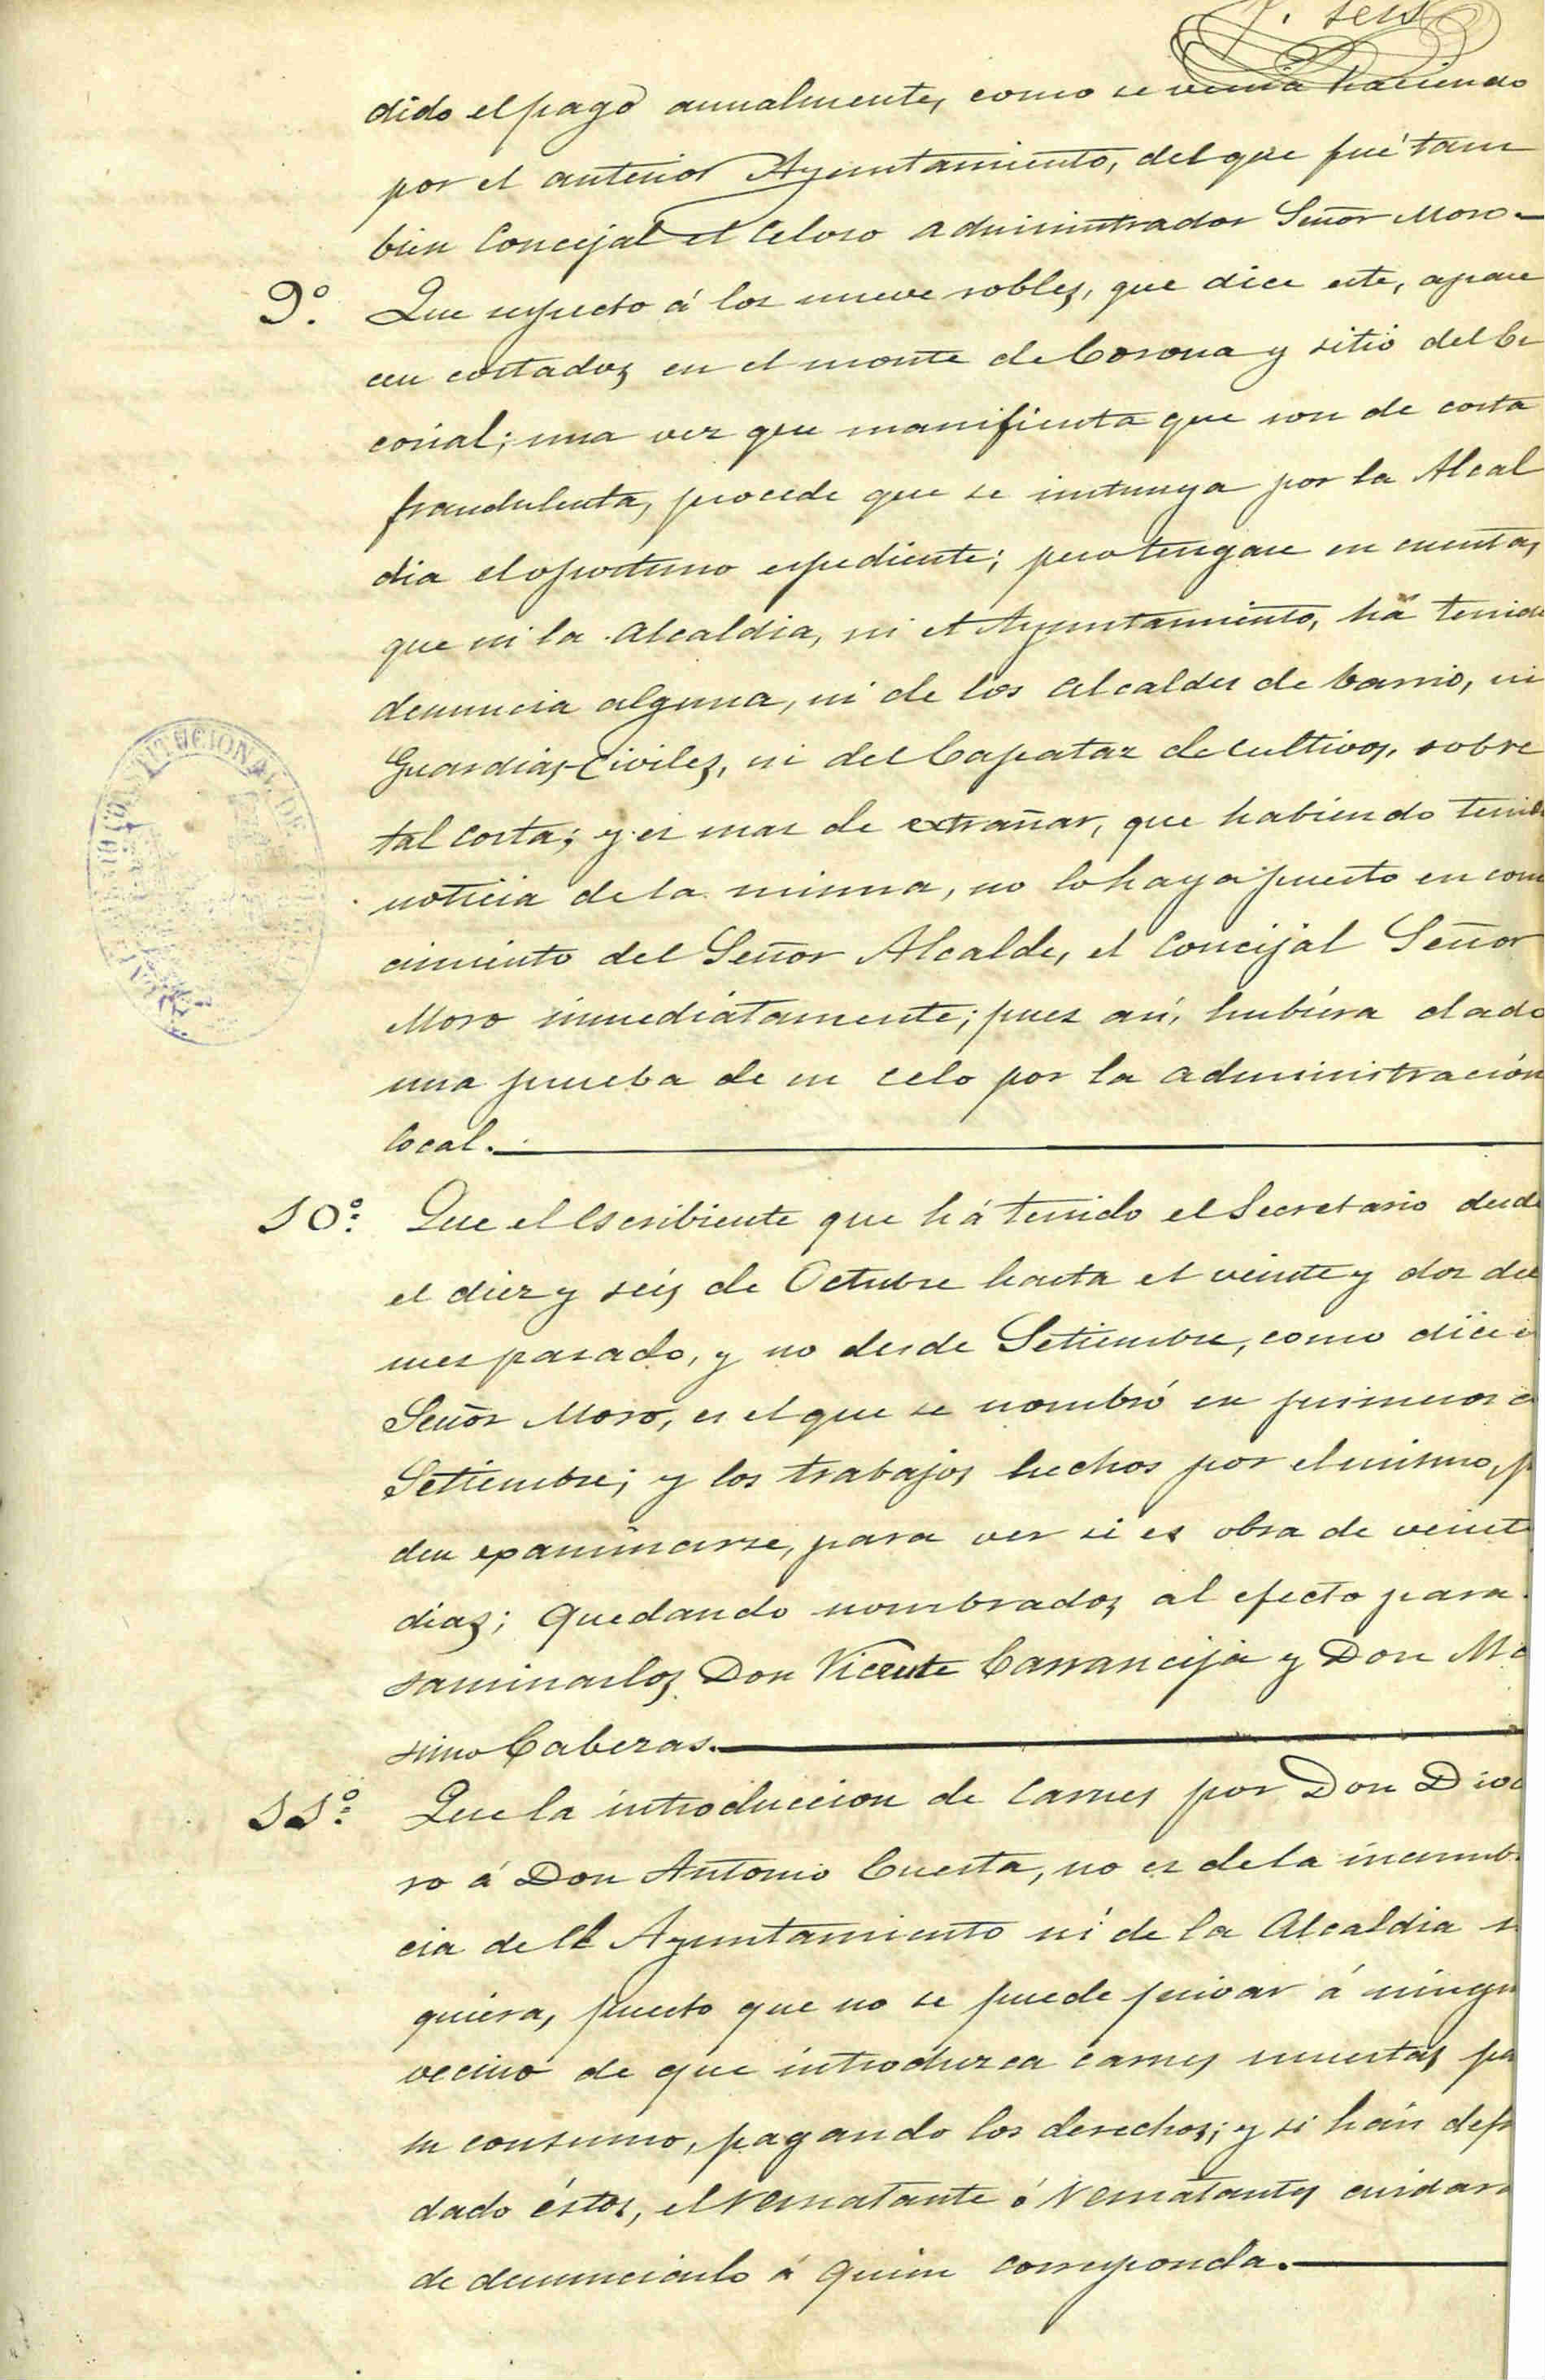 seis
dido el pago anualmente, como se venia haciendo
por el anterior Ayuntamiento, del que fué tam
bien Concejal el celoso administrador Señor Moro.
9.º Que respecto á los nueve robles, que dice este, apare
cen cortados en el monte de Corona y sitio del
corial; una vez que manifiesta que son de corta
fraudulenta, procede que se instruya por la Alcal
dia el oportuno espediente; pero tengase en cuenta,
que ni la Alcaldia, ni el Ayuntamiento, há tenido
denuncia alguna, ni de los Alcaldes de barrio, ni
Guardias Civiles, ni del Capataz de cultivos, sobre
tal corta; y es mas de extrañar, que habiendo tenido
noticia de la misma, no lo haya puesto en cono
cimiento del Señor Alcalde, el Concejal Señor
Moro inmediatamente; pues así, hubiera dado
una prueba de su celo por la administración
local.
10.º Que el Escribiente que há tenido el Secretario desde
el diez y seis de Octubre hasta el veinte y dos del
mes pasado, y no desde Setiembre, como dice
Señor Moro, es el que se nombró en primeros
Setiembre; y los trabajos hechos por el mismo, p
den examinarse, para ver si es obra de veint
dias; quedando nombrados al efecto para
saminarlos Don Vicente Carranceja y Don Má
simo Cabezas.
11.º Que la introduccion de carnes por Don
ro á Don Antonio Cuesta, no es de la incumb
cia del Ayuntamiento ni de la Alcaldia si
quiera, puesto que no se puede privar á ningu
vecino de que introduzca carnes muertas pa
su consumo, pagando los derechos; y si hán defr
dado éstos, el rematante ó rematantes cuidar
de denunciarlo á quien corresponda.